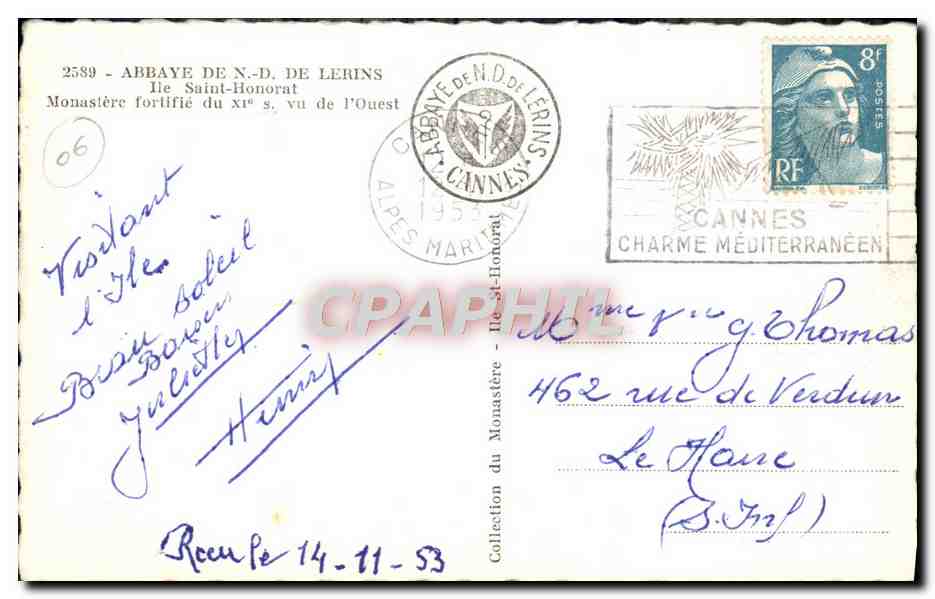 2589 - ABBAYE DE N.-D. DE LERINS
Ile Saint-Honorat
Monastère fortifié du XIe s. vu de l'Ouest
06
ABBAYE DE N.D. DE LÉRINS
CANNES
1953
ALPES MARITIMES
8F
POSTES
RF
CANNES
CHARME MÉDITERRANÉEN
Visitant
l'Ile
Beau Soleil
Baisers
Juliette
Henri
Reçu le 14-11-53
Collection du Monastère - Ile St-Honorat
CPAPHIL
Mme Vve G. Thomas
462 rue de Verdun
Le Havre
(S. Inf)